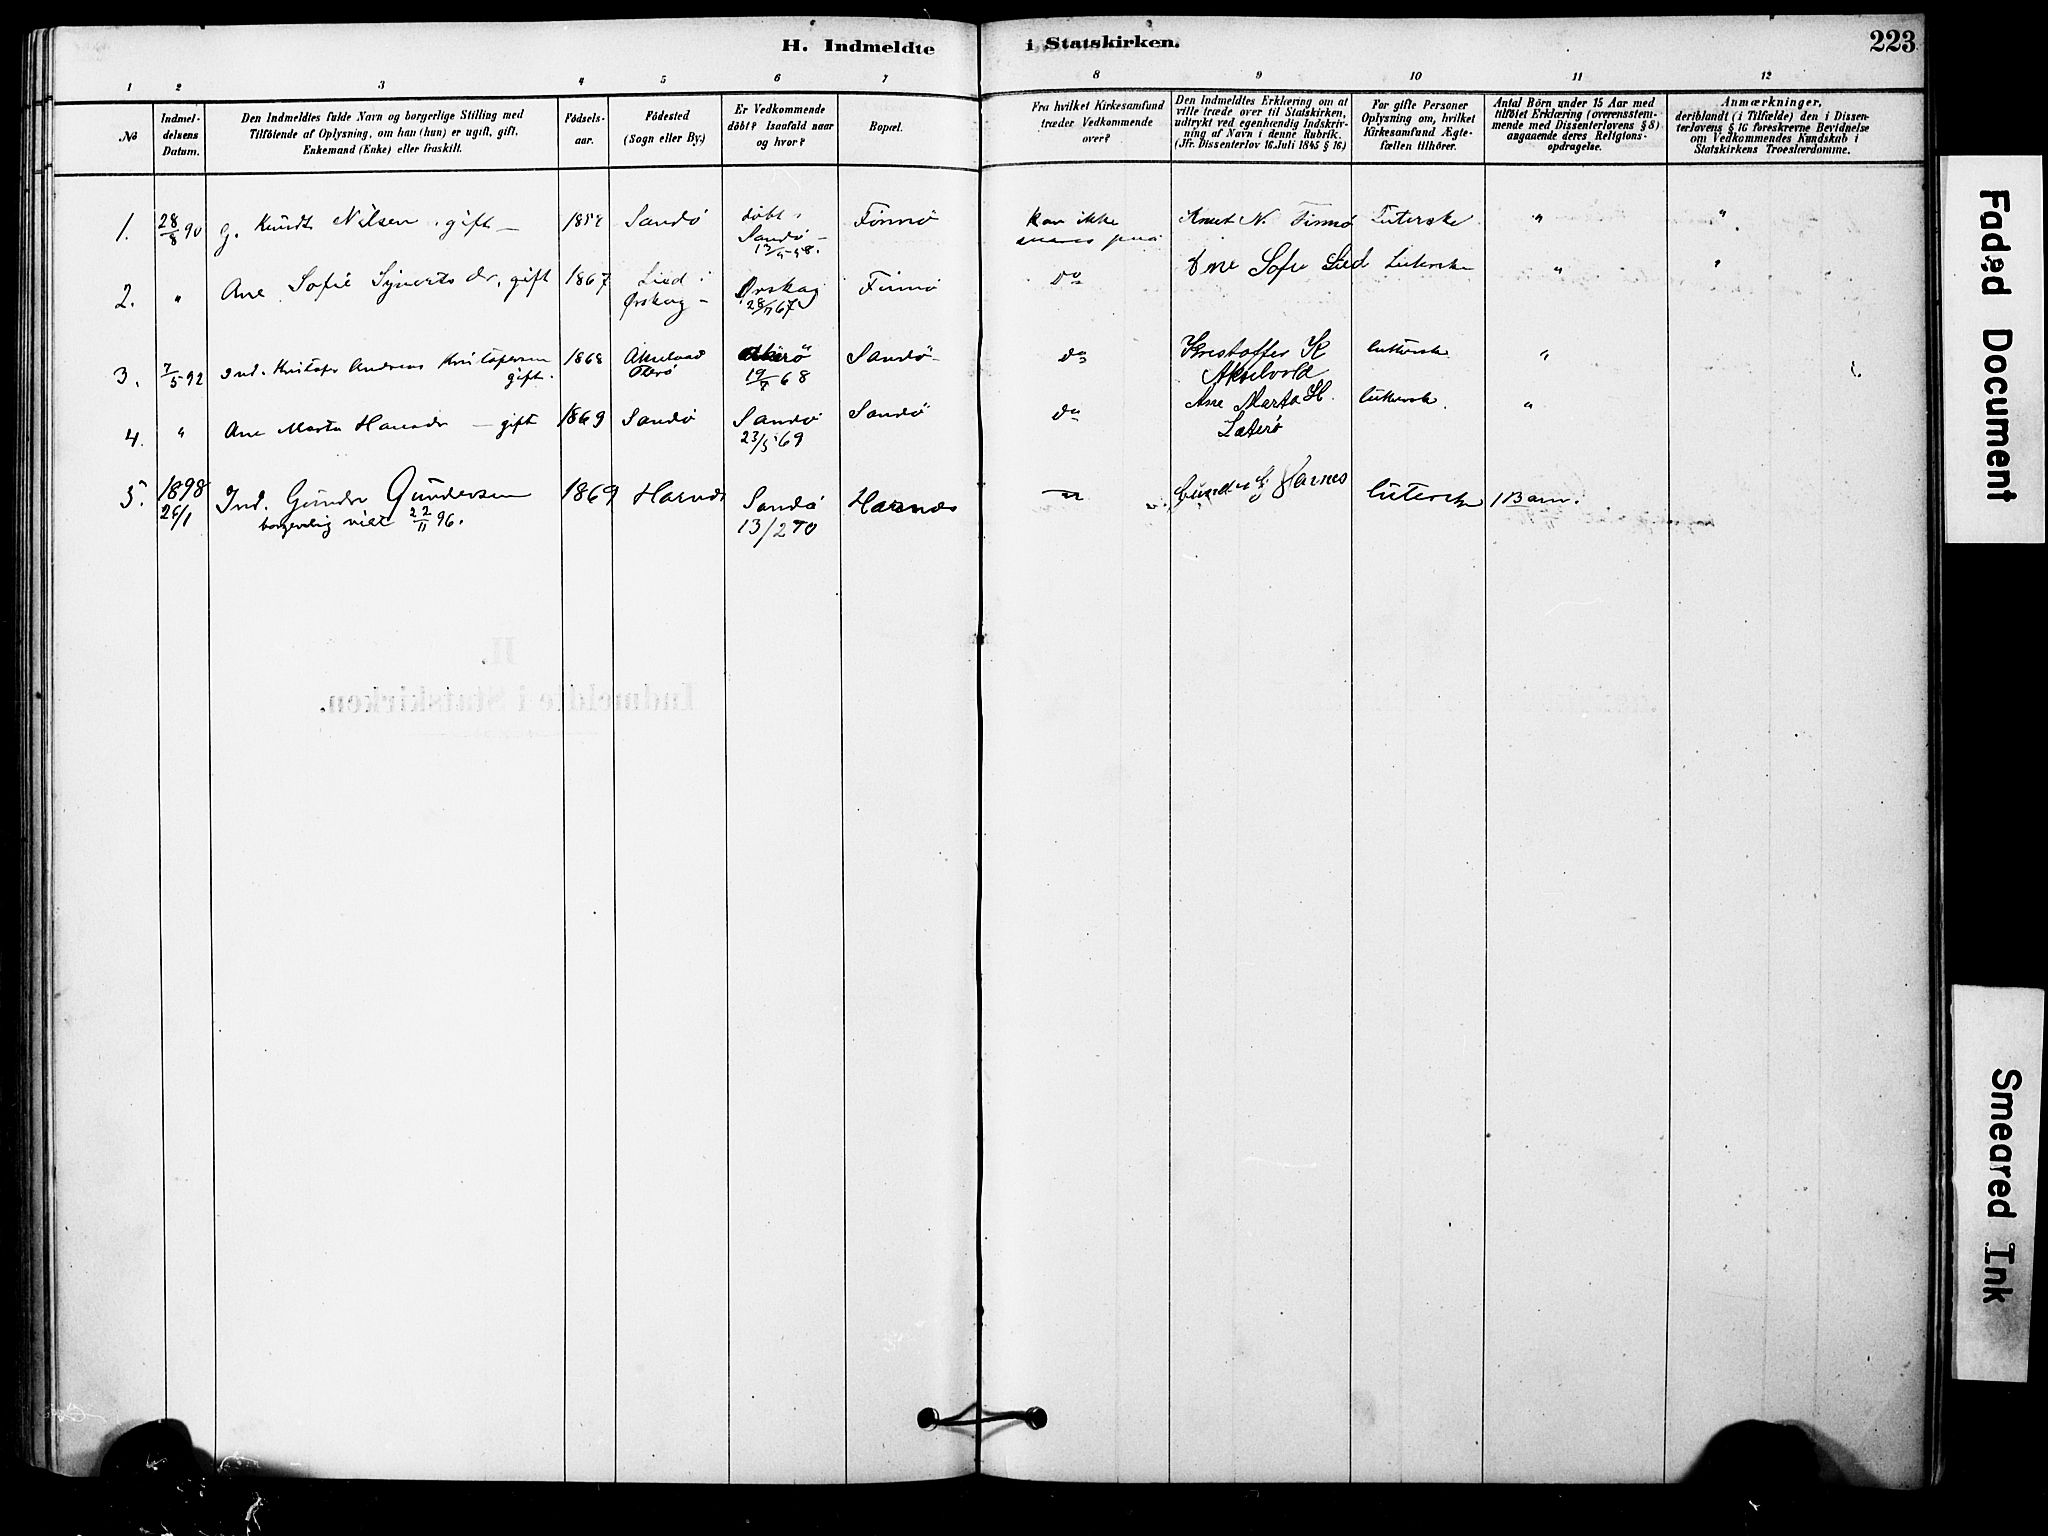 H. Indmeldte i Statskirken.
223
1 2 3 4 5 6 7 8 9 10 11 12
No
Indmel-
delsens
Datum.
Den Indmeldtes fulde Navn og borgerlige Stilling med
Tilföiende af Oplysning, om han (hun) er ugift, gift,
Enkemand (Enke) eller fraskilt.
Födsels-
aar.
Födested
(Sogn eller By.)
Er Vedkommende
döbt? Isaafald naar
og hvor?
Bopæl.
Fra hvilket Kirkesamfund
træder Vedkommende
over?
Den Indmeldtes Erklæring om at
ville træde over til Statskirken,
udtrykt ved egenhændig Indskriv-
ning af Navn i denne Rubrik.
(Jfr. Dissenterlov 16. Juli 1845 § 16)
For gifte Personer
Oplysning om, hvilket
Kirkesamfund Ægte-
fællen tilhörer.
Antal Börn under 15 Aar med
tilföiet Erklæring (overensstem-
mende med Dissenterlovens § 8)
angaaende deres Religions-
opdragelse.
Anmærkninger,
deriblandt (i Tilfælde) den i Dissen-
terlovens § 16 foreskrevne Bevidnelse
om Vedkommendes Kundskab i
Statskirkens Troeslærdomme.
1. 28/8 90 G. Knudt Nilsen, gift – Sandö döbt i Finnö kan ikke Knut N. Finnö Luterske " "
Sandö –
2. " Ane Sofie Synverts dr, gift 1867 Lied i Ørskog Finnö do Ane Sofie Lied Luterske " "
Ørskog – 28/11 67
3. 7/5 92 Ind. Kristofer Andreas Kristofersen 1868 Akselvold Sandö do Kristoffer K luterske "
gift. 19/7 68 Akselvold
4. " Ane Marta Hansdr – gift 1869 Sandö Sandö Sandö do Ane Marta H. luterske. "
23/5 69
5. 1898 Ind. Gunder Gundersen 1869 Harnes Sandö Harnes Gunder G Harnes luterske 1 Barn.
26/1 borgerlig viet 22/11 96. 13/2 70
II.
Indmeldte i Statskirken.
Faded Document
Smeared Ink